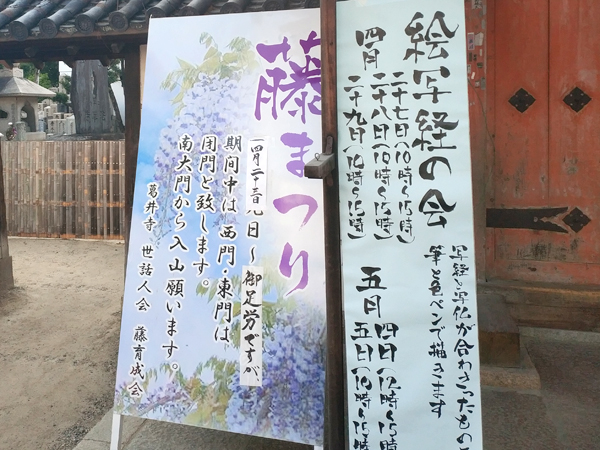 絵写経の会
写経と写仏が合わさったもの
筆と色ペンで描きます
四月
二十七日(10時〜15時)
二十八日(10時〜15時)
二十九日(10時〜15時)
五月
四日(12時〜15時
五日(10時〜15時
藤まつり
四月二十 九日〜御足労ですが、
期間中は西門・東門は
閉門と致します。
南大門から入山願います。
葛井寺 世話人会 藤育成会